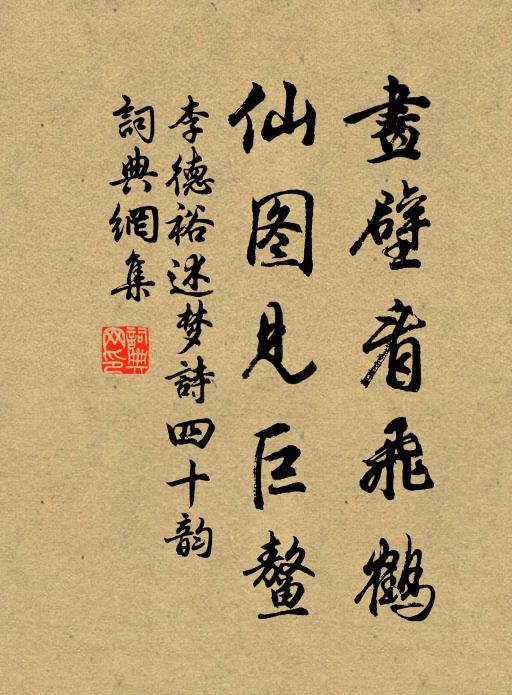 畫壁看飛鶴
仙图見巨鳌
李德裕述梦詩四十韵
詞典網集
詞典
网印